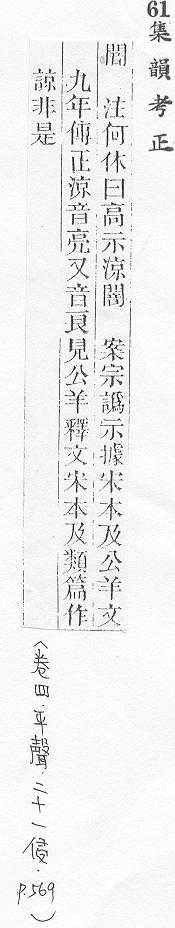 61集韻考正
誾　注何休曰高示涼闇　案宗譌示據宋本及公羊文
九年傳正涼音亮又音良見公羊釋文宋本及類篇作
諒非是
〈卷四．平聲．二十一侵．p.569〉